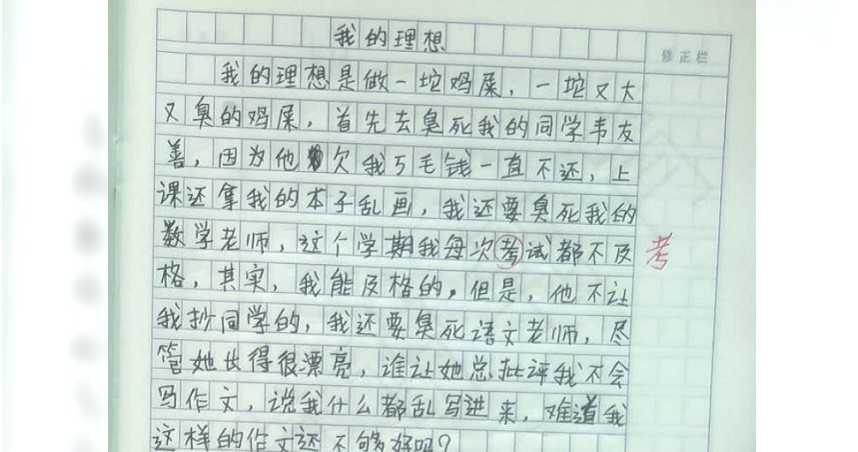 我的理想
修正栏
我的理想是做一坨鸡屎，一坨又大
又臭的鸡屎，首先去臭死我的同学韦友
善，因为他欠我5毛钱一直不还，上
课还拿我的本子乱画，我还要臭死我的
数学老师，这个学期我每次考试都不及
考
格，其实，我能及格的，但是，他不让
我抄同学的，我还要臭死语文老师，尽
管她长得很漂亮，谁让她总批评我不会
写作文，说我什么都乱写进来，难道我
这样的作文还不够好吗？